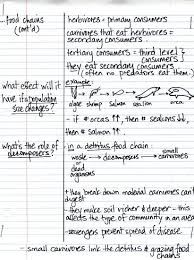 food chains
(cont'd)
herbivores = primary consumers
carnivores that eat herbivores =
secondary consumers
tertiary consumers = third level
consumers
they eat secondary consumers
(often no predators eat them)
what effect will it
have if a population
size changes?
example:
algae shrimp salmon seal orca
- if # orcas ↑, then # seals ↓,
then # salmon ↑.
what's the role of
decomposers?
- in a detritus food chain:
waste → decomposers → small
carnivores
dead
- they break down material carnivores can't
digest
- they make soil richer & deeper - this
affects the type of community in an area
- scavengers prevent spread of disease
- small carnivores link the detritus & grazing food
chains